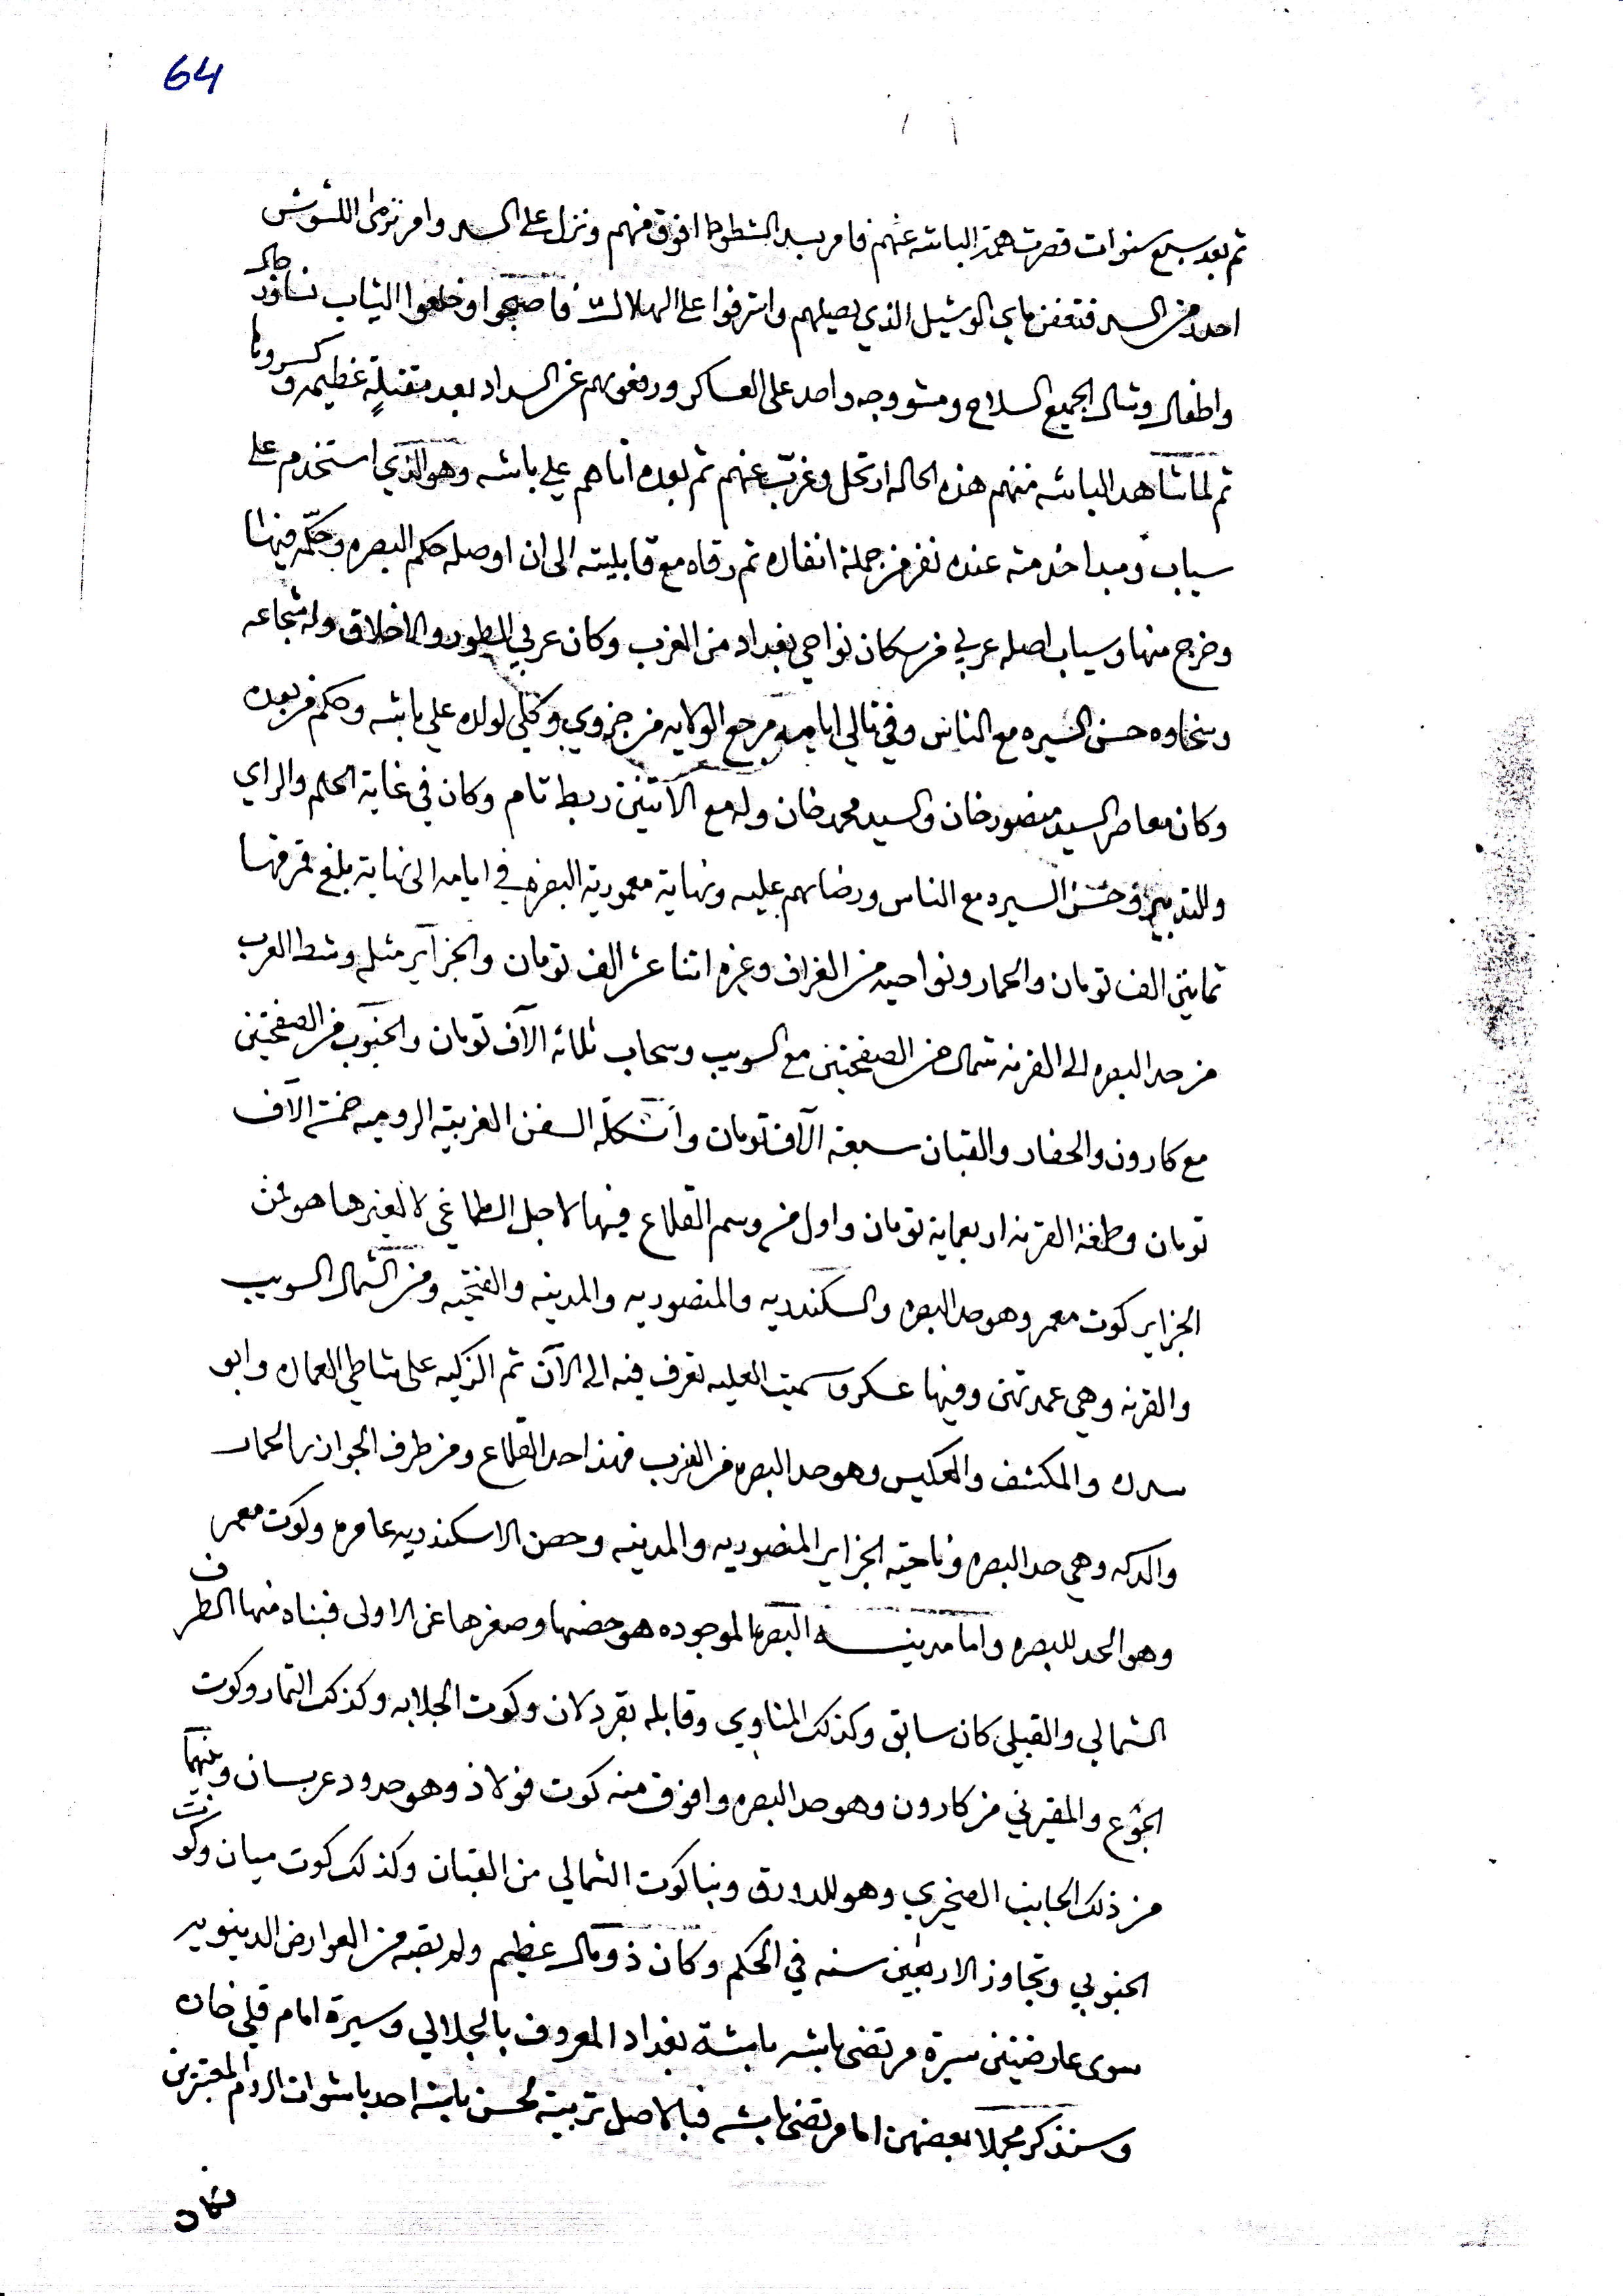 64
ثم بعد سبع سنوات قصرت همة الباشه عنهم فامر بسد الشطوط افوق منهم ونزل على السد وامر ترمى اللشوش
احدد من السد فتعفن ماي الوشيل الذي يصيلهم واشرفوا على الهلاك فاصبحوا وخلعوا الثياب نسا ورجال
واطفال وشال الجميع السلاح ومشو وجه واحد على العساكر ورفعوهم عن السداد بعد مقتلةٍ عظيمه وكسروها
ثم لما شاهد الباشه منهم هذه الحاله ارتحل وغرب عنهم ثم بعده اتاهم علي باشه وهو الذي استخدم على
سياب ومبدا خدمته عنده نفر من جملة انفاره ثم رقاه مع قابليته الى ان اوصله حكم البصره وحكّمه فيها
وخرج منها وسياب اصله عربي من سكان نواحي بغداد من الغرب وكان عربي الطور والاخلاق وله شجاعه
وسخاوه حسن السيره مع الناس وفي تالي ايامه مرجع الولايه من جزوي وكلي لولده علي باشه وحكم من بعده
وكان معاصر السيد منصور خان والسيد محمد خان وله مع الاثنين ربط تام وكان في غاية الحلم والراي
والتدبير وحسن السيره مع الناس ورضاهم عليه ونهاية معمورية البصره في ايامه الى نهاية بلغ قمرقها
ثمانين الف تومان والحمار ونواحيه من الغراف وغيره اثنا عشر الف تومان والجزآير مثله وشط العرب
من حد البصره الى القرنه شمال من الصفحتين مع السويب وسحاب ثلاثه الآف تومان والجنوب من الصفحتين
مع كارون والحفار والقبان سبعة الآف تومان وأشكلة السفن الغربية الروميه خمسة الآف
تومان وطغة القرنه اربعماية تومان واول من وسم القلاع فيها لاجل الطاغي لا لغيرها هو فمن
الجزاير كوت معمر وهو حد البصره والسكندريه والمنصوريه والمدينه والفتحيه ومن الشمال السويب
والقرنه وهي عمدتهن وفيها عسكر وسميت العليه تعرف فيه الى الآن ثم الزكيه على شاطي العماره وابو
سدره والمكشف والعكيس وهو حد البصره من الغرب فهذا احد القلاع ومن طرف الجوازر الحمار
والدكه وهي حد البصره وناحية الجزاير المنصوريه والمدينه وحصن الاسكندريه عامره وكوت معمر
وهو الحد للبصره واما مدينة البصره الموجوده هو حضها وصغرها عن الاولى فبناه منها الطرف
الشمالي والقبلي كان سابق وكذلك المناوي وقابله بقردلان وكوت الجلابه وكذلك التمار وكوت
الجوع والمقيرني من كارون وهو حد البصره وافوق منه كوت فولاذ وهو حدود عربسان وبينهما
من ذلك الجانب الصخيري وهو للدورق وبنا كوت الشمالي من القبان وكذلك كوت ميان وكوت
الجنوبي وتجاوز الاربعين سنه في الحكم وكان ذو مال عظيم ولم يصبه من العوارض الدينويه
سوى عارضتين سيرة مرتضى باشه باشة بغداد المعروف بالجلالي وسيرة امام قلي خان
وسنذكر مجملا بعضهن اما مرتضى باشه فبالاصل تربية لحسن باشه احد باشوات الروم المعتبرين